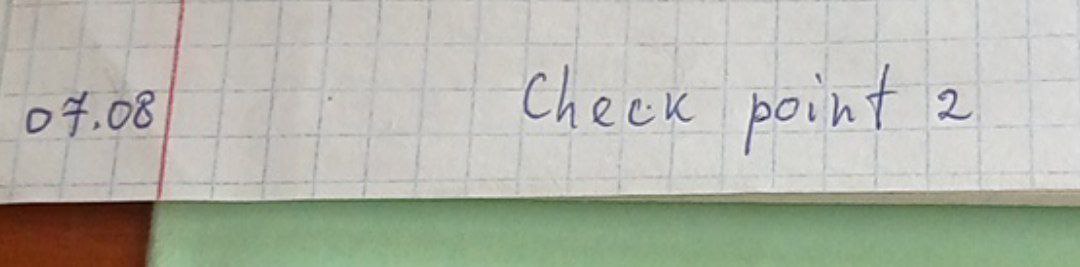 07.08 Check point 2